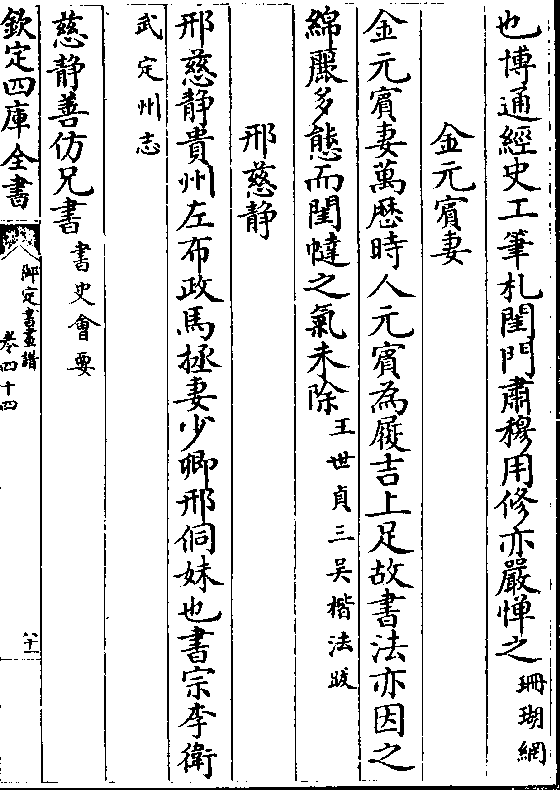 也博通經史工筆札閨門肅穆用修亦嚴憚之珊瑚網
金元賓妻
金元賓妻萬歷時人元賓為履吉上足故書法亦因之
綿麗多態而閨幃之氣未除王世貞三吳楷法跋
邢慈静
邢慈静貴州左布政馬拯妻少卿邢侗妹也書宗李衛
武定州志
慈静善仿兄書書史會要
欽定四庫全書
御定書畫譜
卷四十四